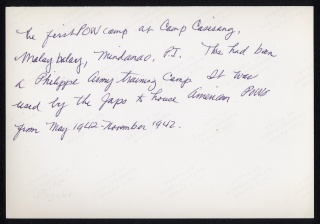 The first POW camp at Camp Casisang,
Malaybalay, Mindanao, P.I. This had been
a Philippe Army training Camp It was
used by the Japs to house American POWs
from May 1942-November 1942.